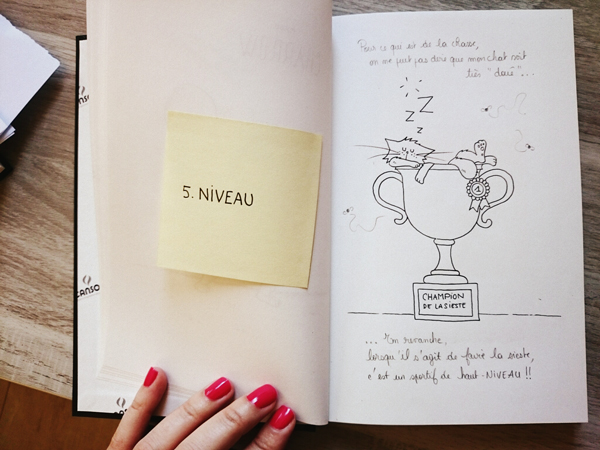 5. NiVEAU
Pour ce qui est de la chasse,
on ne peut pas dire que mon chat soit
très "doué"...
Z
Z
Z
Z
1
CHAMPiON
DE LA SiESTE
... En revanche,
lorsqu'il s'agit de faire la sieste,
c'est un sportif de haut-NiVEAU !!
CANSO
CANSO